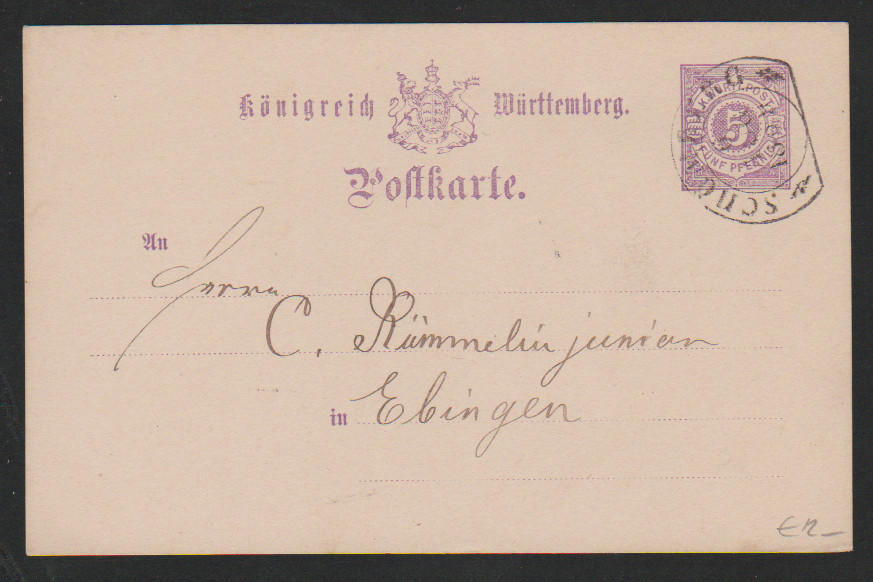 Königreich Württemberg.
Postkarte.
K. WÜRTT. POST
5
FÜNF PFENNIG
An
Herrn
C. Rümmelin junior
in Ebingen